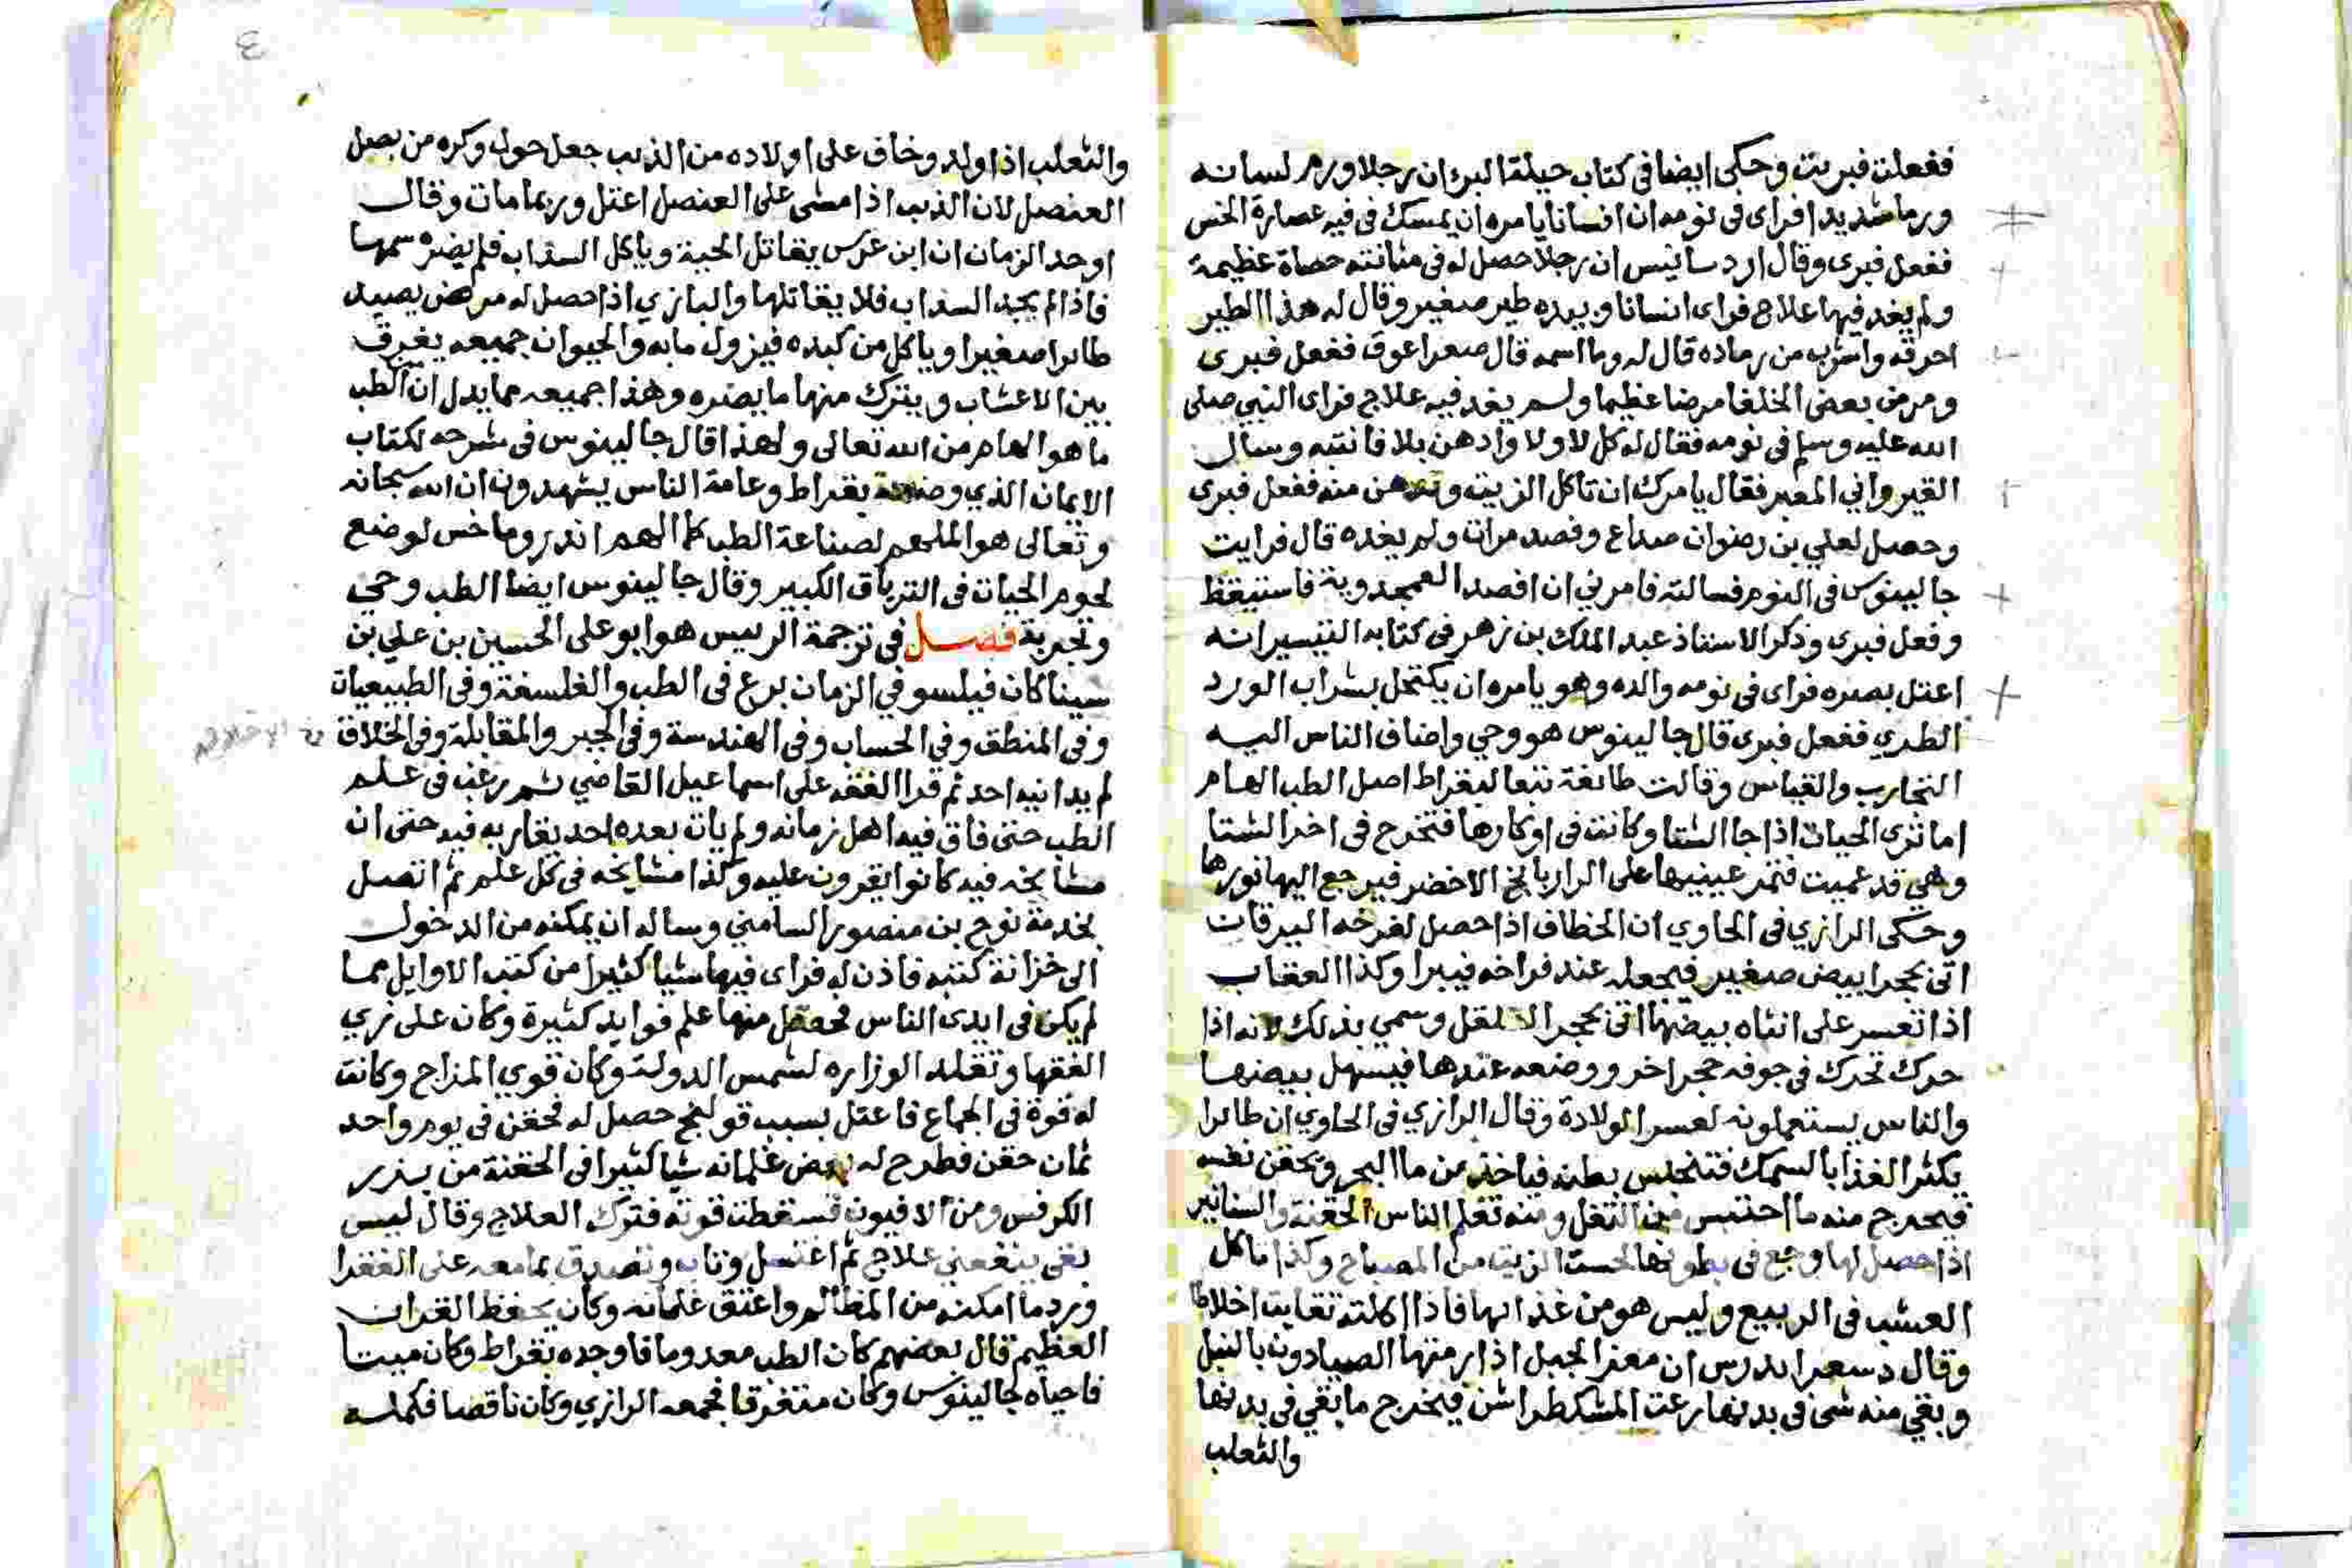 ففعلت فبريت وحكى ايضا في كتاب حيلة البرء ان رجلا ورم لسانه
ورما شديدا فراى في نومه ان انسانا يامره ان يمسك في فيه عصارة الخس
ففعل فبرى وقال ارد سانيس ان رجلا حصل له في مثانته حصاة عظيمة
ولم يفد فيها علاج فراى انسانا وبيده طير صغير وقال له هذا الطير
احرقه واشرب من رماده قال له وما اسمه قال صفراغوق ففعل فبرى
ومرض بعض الخلفا مرضا عظيما ولم يفد فيه علاج فراى النبي صلى
الله عليه وسلم في نومه فقال له كل لا ولا وادهن بلا فانتبه وسال
القيرواني المعبر فقال يامرك ان تاكل الزيت وتدهن منه ففعل فبرى
وحصل لعلي بن رضوان صداع وفصد مرات ولم يفده قال فرايت
جالينوس في النوم فسالته فامرني ان افصد القمحدوية فاستيقظ
وفعل فبرى وذكر الاستاذ عبد الملك بن زهر في كتابه التيسير انه
اعتل بصره فراى في نومه والده وهو يامره ان يكتحل بشراب الورد
الطري ففعل فبرى قال جالينوس هو وحي واضاف الناس اليه
التجارب والقياس وقالت طائفة تبعا لبقراط اصل الطب الهام
اما ترى الحيات اذا جا الشتا وكانت في اوكارها فتخرج في اخر الشتا
وهي قد عميت فتمر عينيها على الرازيانج الاخضر فيرجع اليها نورها
وحكى الرازي في الحاوي ان الخطاف اذا حصل لفرخه اليرقان
اتى بحجر ابيض صغير فيجعله عند فراخه فيبرا وكذا العقاب
اذا تعسر على انثاه بيضها اتى بحجر القلقل وسمي بذلك لانه اذا
حرك تحرك في جوفه حجر اخر ووضعه عندها فيسهل بيضها
والناس يستعملونه لعسر الولادة وقال الرازي في الحاوي ان طائرا
يكثر الغذا بالسمك فتنحبس بطنه فياخذ من ما البحر ويحقن نفسه
فيخرج منه ما احتبس من الثفل ومنه تعلم الناس الحقنة والسنانير
اذا حصل لها وجع في بطونها لحست الزيت من المصباح وكذا تاكل
العشب في الربيع وليس هو من غذائها فاذا اكلته تقايت اخلاطا
وقال دسقراندرس ان معز الجبل اذا رمتها الصيادون بالنبل
وبقي منه شئ في بدنها رعت المشكطراشن فيخرج ما بقي في بدنها
والثعلب
والثعلب اذا ولد وخاف على اولاده من الذيب جعل حول وكره من بصل
العنصل لان الذيب اذا مشى على العنصل اعتل وربما مات وقال
اوحد الزمان ان ابن عرس يقاتل الحية وياكل السذاب فلم يضره سمها
فاذا لم يجد السذاب فلا يقاتلها والبازي اذا حصل له مرض يصيد
طائرا صغيرا وياكل من كبده فيزول ما به والحيوان جميعه يفرق
بين الاعشاب ويترك منها ما يضره وهذا جميعه مما يدل ان الطب
ما هو الهام من الله تعالى ولهذا قال جالينوس في شرحه لكتاب
الايمان الذي وضعه بقراط وعامة الناس يشهدون ان الله سبحانه
وتعالى هو الملهم لصناعة الطب كما الهم اندروماخس لوضع
لحوم الحيات في الترياق الكبير وقال جالينوس ايضا الطب وحي
وتجربة فصل في ترجمة الرييس هو ابو على الحسين بن علي بن
سينا كان فيلسوفي الزمان برع في الطب والفلسفة وفي الطبيعيات
وفي المنطق وفي الحساب وفي الهندسة وفي الجبر والمقابلة وفي الخلاق
لم يدانيه احد ثم قرا الفقه على اسماعيل القاضي ثم رغب في علم
الطب حتى فاق فيه اهل زمانه ولم يات بعده احد يقاربه فيه حتى ان
مشايخه فيه كانوا يقرون عليه وكذا مشايخه في كل علم ثم اتصل
بخدمة نوح بن منصور السامني وساله ان يمكنه من الدخول
الى خزانة كتبه فاذن له فراى فيها شيا كثيرا من كتب الاوايل مما
لم يكن في ايدي الناس فحصل منها علم فوايد كثيرة وكان على زي
الفقها وتقلد الوزاره لشمس الدولة وكان قوي المزاج وكانت
له قوة في الجماع فاعتل بسبب قولنج حصل له فحقن في يوم واحد
ثمان حقن فطرح له بعض غلمانه شيا كثيرا في الحقنة من بزر
الكرفس ومن الافيون فسقطت قوته فترك العلاج وقال ليس
بقي ينفعني علاج ثم اغتسل وتاب وتصدق بما معه على الفقرا
ورد ما امكنه من المظالم واعتق غلمانه وكان يحفظ القران
العظيم قال بعضهم كان الطب معدوما فاوجده بقراط وكان ميتا
فاحياه جالينوس وكان متفرقا فجمعه الرازي وكان ناقصا فكمله